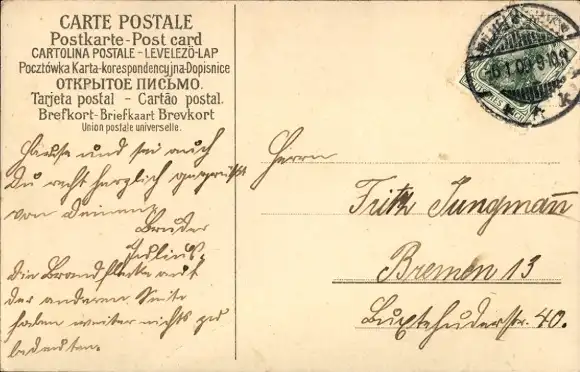 CARTE POSTALE
Postkarte-Post card
CARTOLINA POSTALE - LEVELEZŐ-LAP
Pocztówka Karta-korespondencyjna-Dopisnice
ОТКРЫТОЕ ПИСЬМО.
Tarjeta postal - Cartão postal.
Brefkort-Briefkaart Brevkort
Union postale universelle.
Hause und sei auch
Du recht herzlich gegrüßt
von Deinem
Bruder
Julius.
Die Brandflecke auf
der anderen Seite
haben weiter nichts zu
bedeuten.
Herrn
Fritz Jungmann
Bremen 13
Buxtehuderstr. 40.